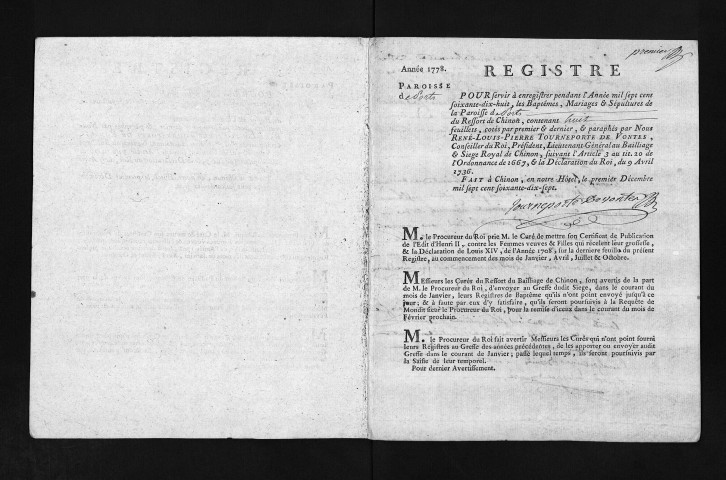 premier
Année 1778.
REGISTRE
PAROISSE
de Ports
POUR servir à enregistrer pendant l'Année mil sept cens
soixante-dix-huit, les Baptêmes, Mariages & Sépultures de
la Paroisse de Ports
du Ressort de Chinon, contenant huit
feuillets, cotés par premier & dernier, & paraphés par Nous
RENÉ-LOUIS-PIERRE TOURNEPORTE DE VONTES,
Conseiller du Roi, Président, Lieutenant Général au Bailliage
& Siege Royal de Chinon, suivant l'Article 3 au tit. 20 de
l'Ordonnance de 1667, & la Déclaration du Roi, du 9 Avril
1736.
FAIT à Chinon, en notre Hôtel, le premier Décembre
mil sept cens soixante-dix-sept.
Tourneporte Devontes
M. le Procureur du Roi prie M. le Curé de mettre son Certificat de Publication
de l'Edit d'Henri II, contre les Femmes veuves & Filles qui récelent leur grossesse,
& la Déclaration de Louis XIV, de l'Année 1708, sur la derniere feuille du présent
Registre, au commencement des mois de Janvier, Avril, Juillet & Octobre.
MEssieurs les Curés du Ressort du Bailliage de Chinon, sont avertis de la part
de M. le Procureur du Roi, d'envoyer au Greffe dudit Siege, dans le courant du
mois de Janvier, leurs Registres de Baptême qu'ils n'ont point envoyé jusqu'à ce
jour; & à faute par eux d'y satisfaire, qu'ils seront poursuivis à la Requête de
Mondit sieur le Procureur du Roi, pour la remise d'iceux dans le courant du mois de
Février prochain.
M. le Procureur du Roi fait avertir Messieurs les Curés qui n'ont point fourni
leurs Registres au Greffe des années précédentes, de les apporter ou envoyer audit
Greffe dans le courant de Janvier; passé lequel temps, ils seront poursuivis par
la Saisie de leur temporel.
Pour dernier Avertissement.